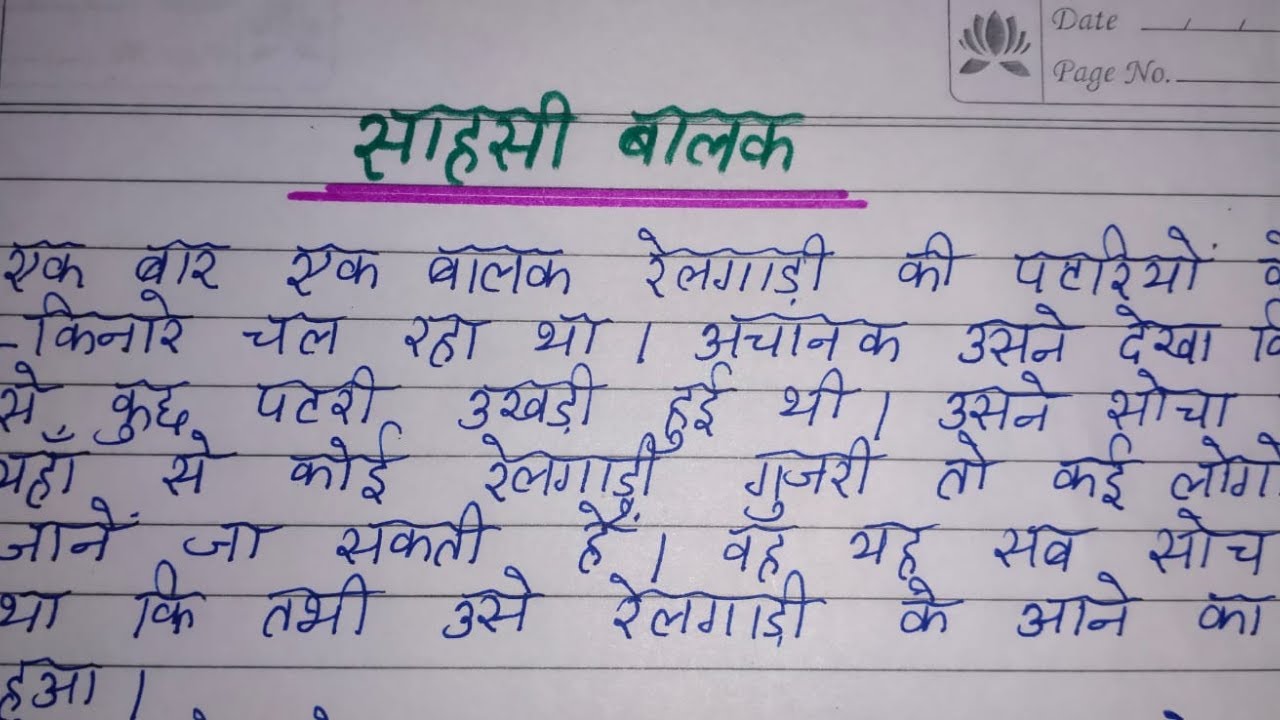 Date
Page No.
साहसी बालक
एक बार एक बालक रेलगाड़ी की पटरियों
किनारे चल रहा था। अचानक उसने देखा
से कुछ पटरी उखड़ी हुई थी। उसने सोचा
यहाँ से कोई रेलगाड़ी गुजरी तो कई लोगो
जानें जा सकती हैं। वह यह सब सोच
था कि तभी उसे रेलगाड़ी के आने का
हुआ।